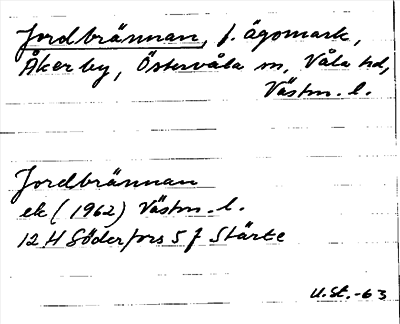 Jordbrännan, f. ägomark,
Åkerby, Östervåla sn, Våla hd,
Västm. l.
Jordbrännan
ek (1962) Västm. l.
12 H Söderfors 5 f Stärte
U.St. -63